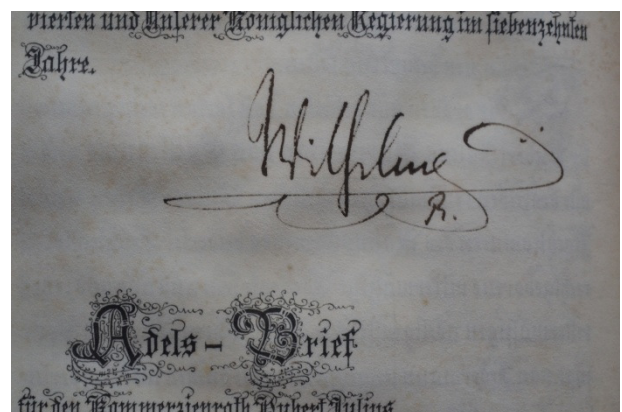 vierten und Unserer Königlichen Regierung im siebenzehnten
Jahre.
Wilhelm
R.
Adels-Brief
für den Kommerzienrath Hubert Julius